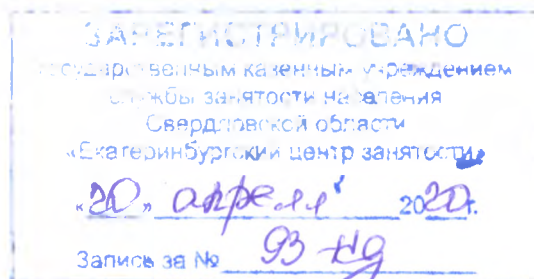 ЗАРЕГИСТРИРОВАНО
государственным казенным учреждением
службы занятости населения
Свердловской области
«Екатеринбургский центр занятости»
«20» апреля 2020г.
Запись за № 93-кд